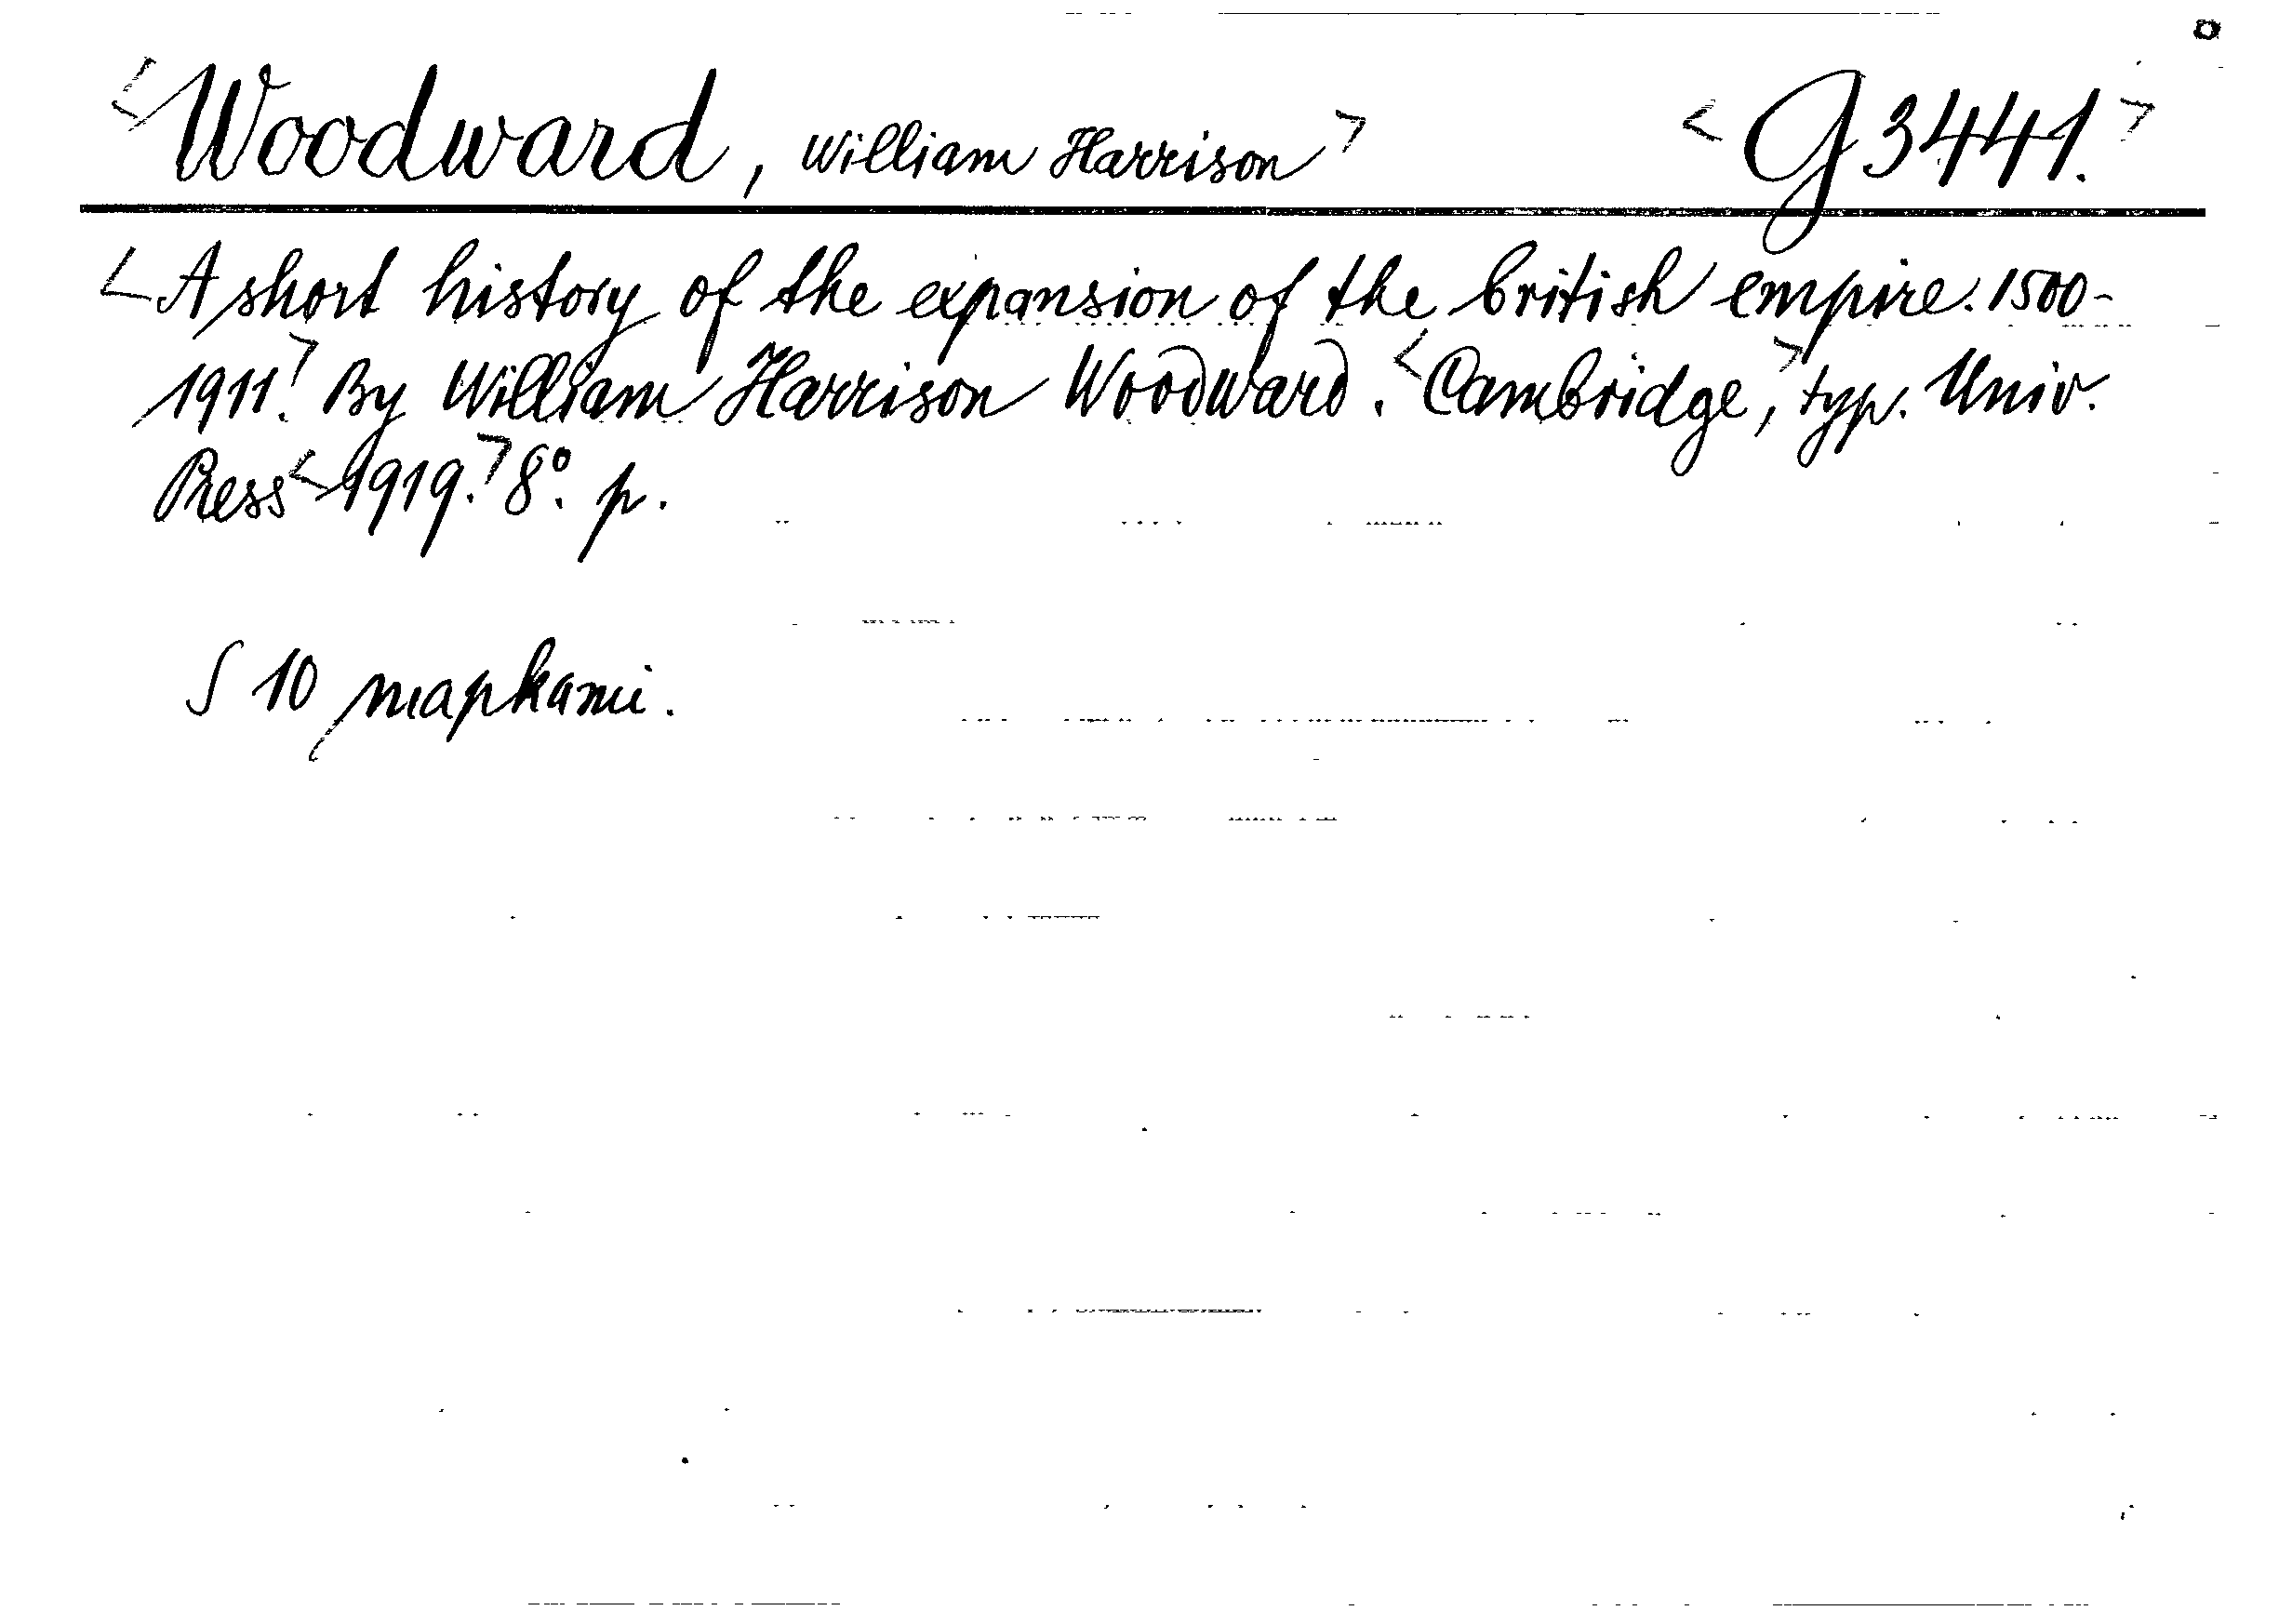 <Woodward, William Harrison> <G 3441.>
<A short history of the expansion of the british empire. 1500-
1911.> By William Harrison Woodward. <Cambridge,> typ. Univ.
Press <1919.> 8°. p.
S 10 mapkami.